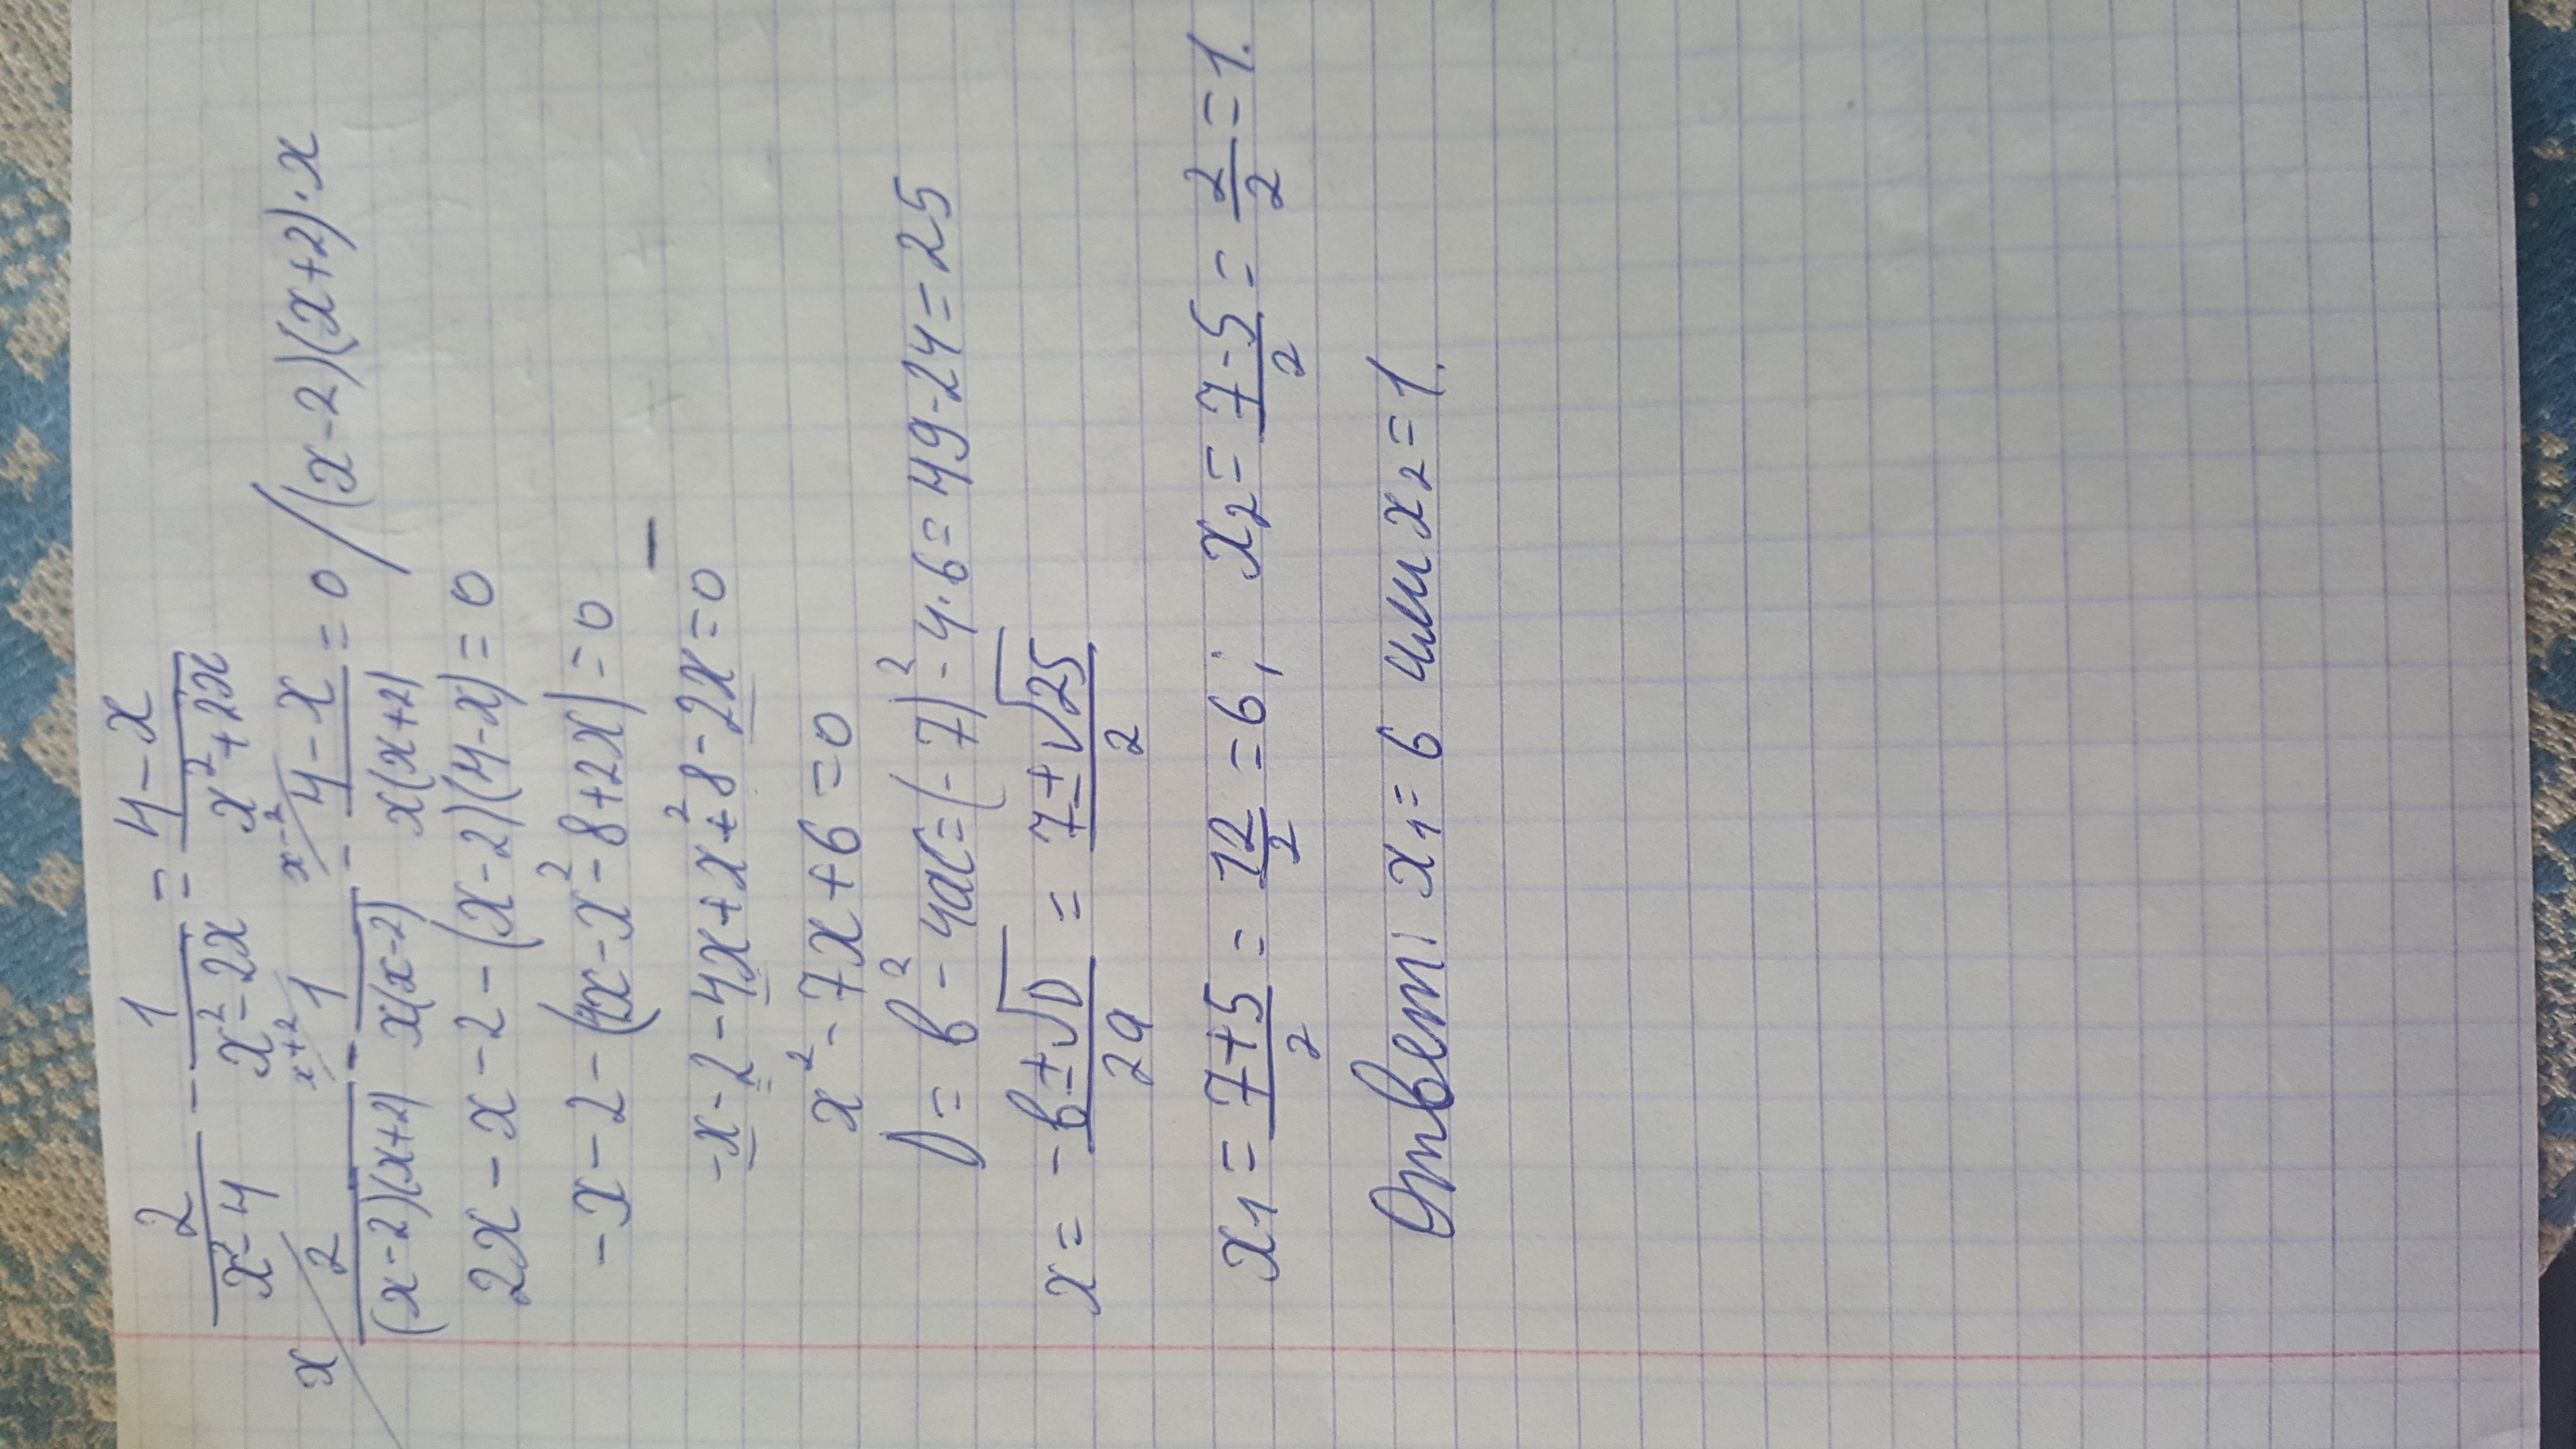 2/(x²-4) - 1/(x²-2x) = (4-x)/(x²+2x)
x/ 2/((x-2)(x+2)) - x+2/ 1/(x(x-2)) - x-2/ (4-x)/(x(x+2)) = 0 /(x-2)(x+2)·x
2x-x-2-(x-2)(4-x)=0
-x-2-(4x-x²-8+2x)=0
-x-2-4x+x²+8-2x=0
x²-7x+6=0
D=b²-4ac=(-7)²-4·6=49-24=25
x = (-b±√D)/2a = (7±√25)/2
x₁ = (7+5)/2 = 12/2 = 6; x₂ = (7-5)/2 = 2/2 = 1.
Ответ: x₁=6 или x₂=1.